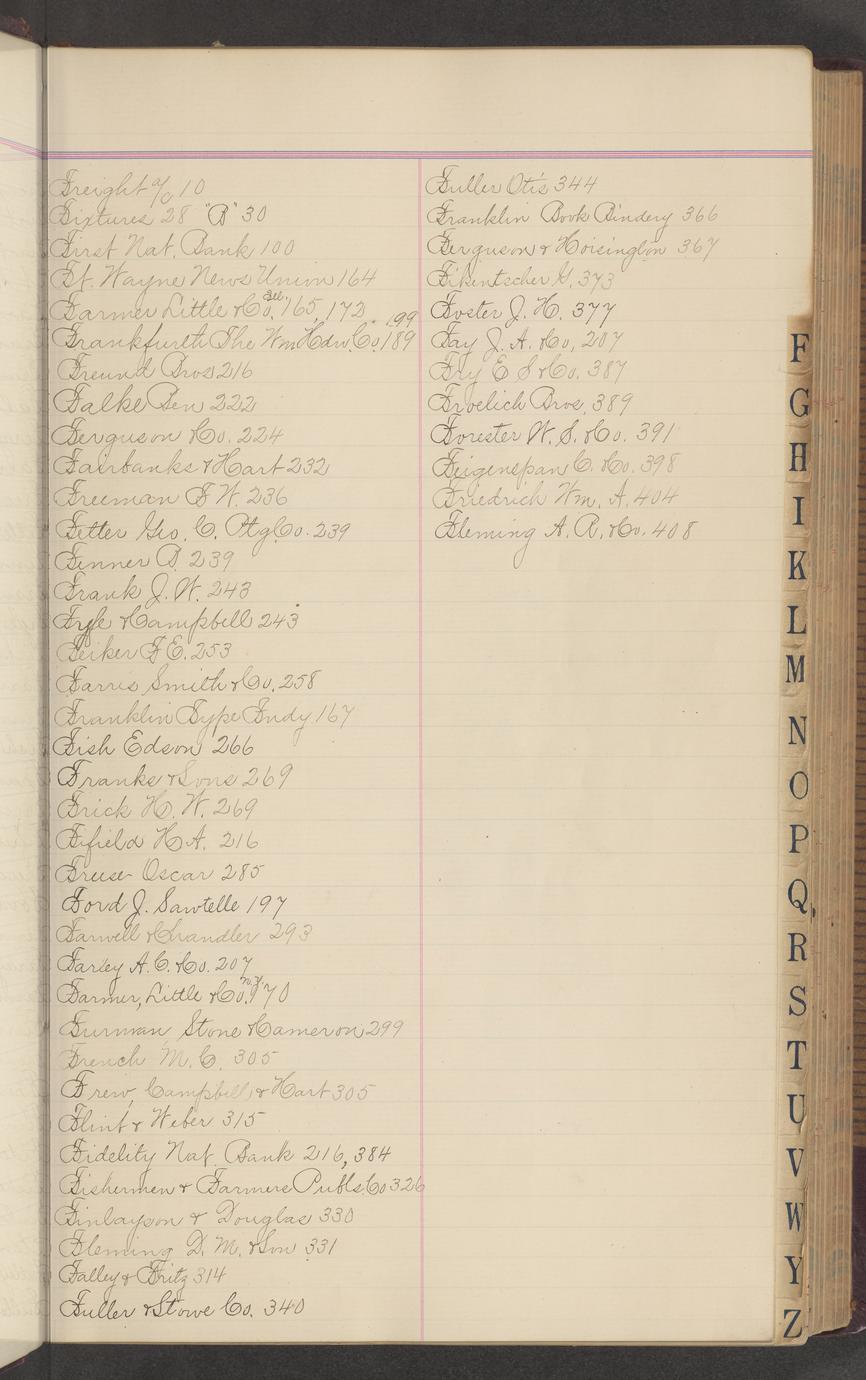 Freight a/c 10
Fixtures 28 "B" 30
First Nat. Bank 100
Ft. Wayne News Union 164
Farmer Little & Co. 165, 172, 199
Frankfurth The Wm Hdw. Co. 189
Freund Bros 216
Falke Ben 222
Ferguson & Co. 224
Fairbanks & Hart 232
Freeman F W. 236
Fetter Geo. C. Ptg Co. 239
Fenner B. 239
Frank J. W. 243
Fyfe & Campbell 243
Feiker F E. 253
Farris Smith & Co. 258
Franklin Type Fndy 167
Fish Edson 266
Franks & Sons 269
Frick H. W. 269
Fifield H A. 216
Fruse Oscar 285
Ford J. Sawtelle 197
Farwell & Chandler 293
Farley A. C. & Co. 207
Farmer, Little & Co. N.Y. 170
Furman Stone & Cameron 299
French M. C. 305
Frew, Campbell & Hart 305
Flint & Weber 315
Fidelity Nat. Bank 216, 384
Fishermen & Farmers Publs Co 326
Finlayson & Douglas 330
Fleming D. M. & Son 331
Falley & Fritz 314
Fuller & Stowe Co. 340
Fuller Otis 344
Franklin Book Bindery 366
Ferguson & Hoisington 367
Fikentscher G. 373
Foster J. H. 377
Fay J. A. & Co, 207
Fly E S & Co. 387
Froelich Bros. 389
Forester W. S. & Co. 391
Feigenspan C. & Co. 398
Friedrich Wm. A. 404
Fleming A. R. & Co. 408
F
G
H
I
K
L
M
N
O
P
Q
R
S
T
U
V
W
Y
Z